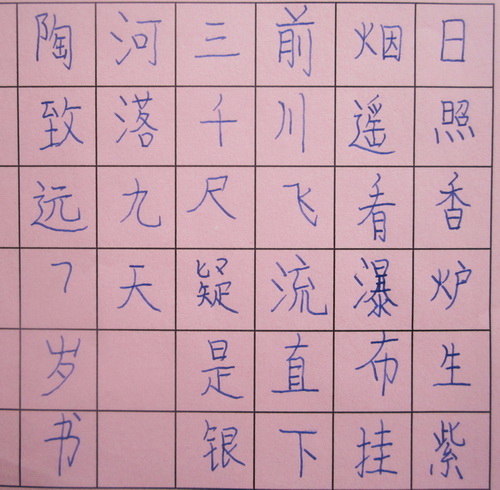 日照香炉生紫
烟遥看瀑布挂
前川飞流直下
三千尺疑是银
河落九天
陶致远7岁书